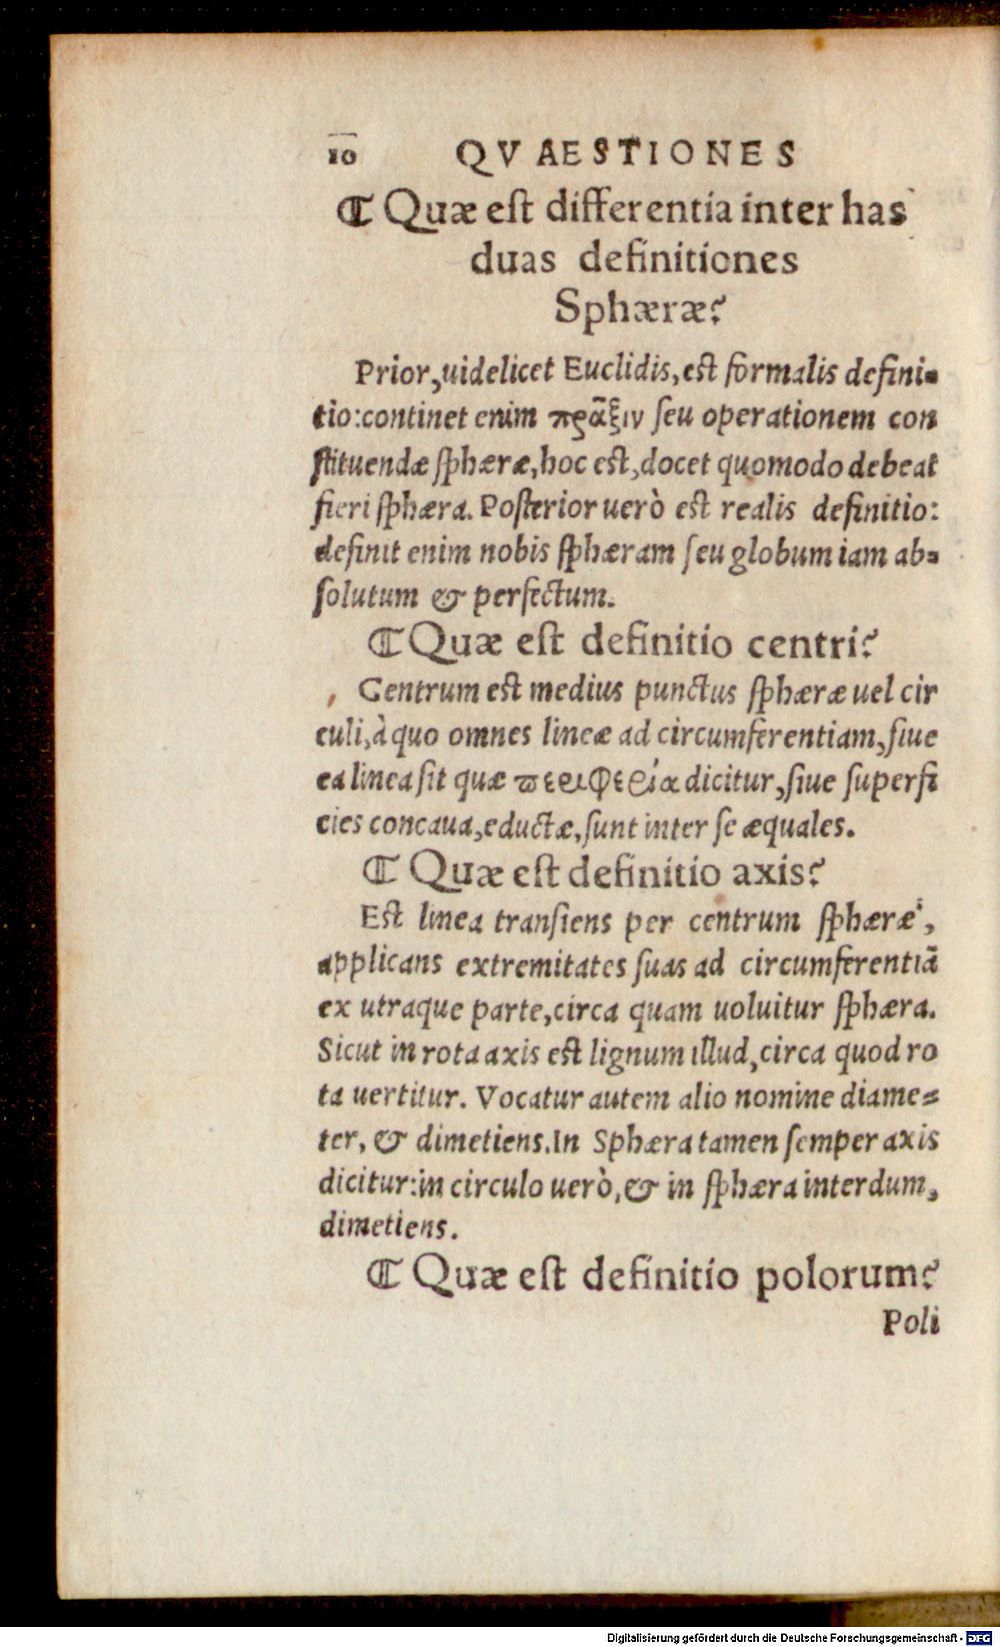 10 QVAESTIONES
¶ Quæ eſt differentia inter has
duas definitiones
Sphæræ?
Prior, uidelicet Euclidis, eſt formalis defini-
tio: continet enim πρᾶξιν ſeu operationem con
ſtituendæ ſphæræ, hoc eſt, docet quomodo debeat
fieri ſphæra. Poſterior uerò eſt realis definitio:
definit enim nobis ſphæram ſeu globum iam ab-
ſolutum & perfectum.
¶ Quæ eſt definitio centri?
Centrum eſt medius punctus ſphæræ uel cir
culi, à quo omnes lineæ ad circumferentiam, ſiue
ea linea ſit quæ περιφερία dicitur, ſiue ſuperfi
cies concaua, eductæ, ſunt inter ſe æquales.
¶ Quæ eſt definitio axis?
Eſt linea tranſiens per centrum ſphæræ,
applicans extremitates ſuas ad circumferentiā
ex utraque parte, circa quam uoluitur ſphæra.
Sicut in rota axis eſt lignum illud, circa quod ro
ta uertitur. Vocatur autem alio nomine diame-
ter, & dimetiens. In Sphæra tamen ſemper axis
dicitur: in circulo uerò, & in ſphæra interdum,
dimetiens.
¶ Quæ eſt definitio polorum?
Poli
Digitalisierung gefördert durch die Deutsche Forschungsgemeinschaft - DFG